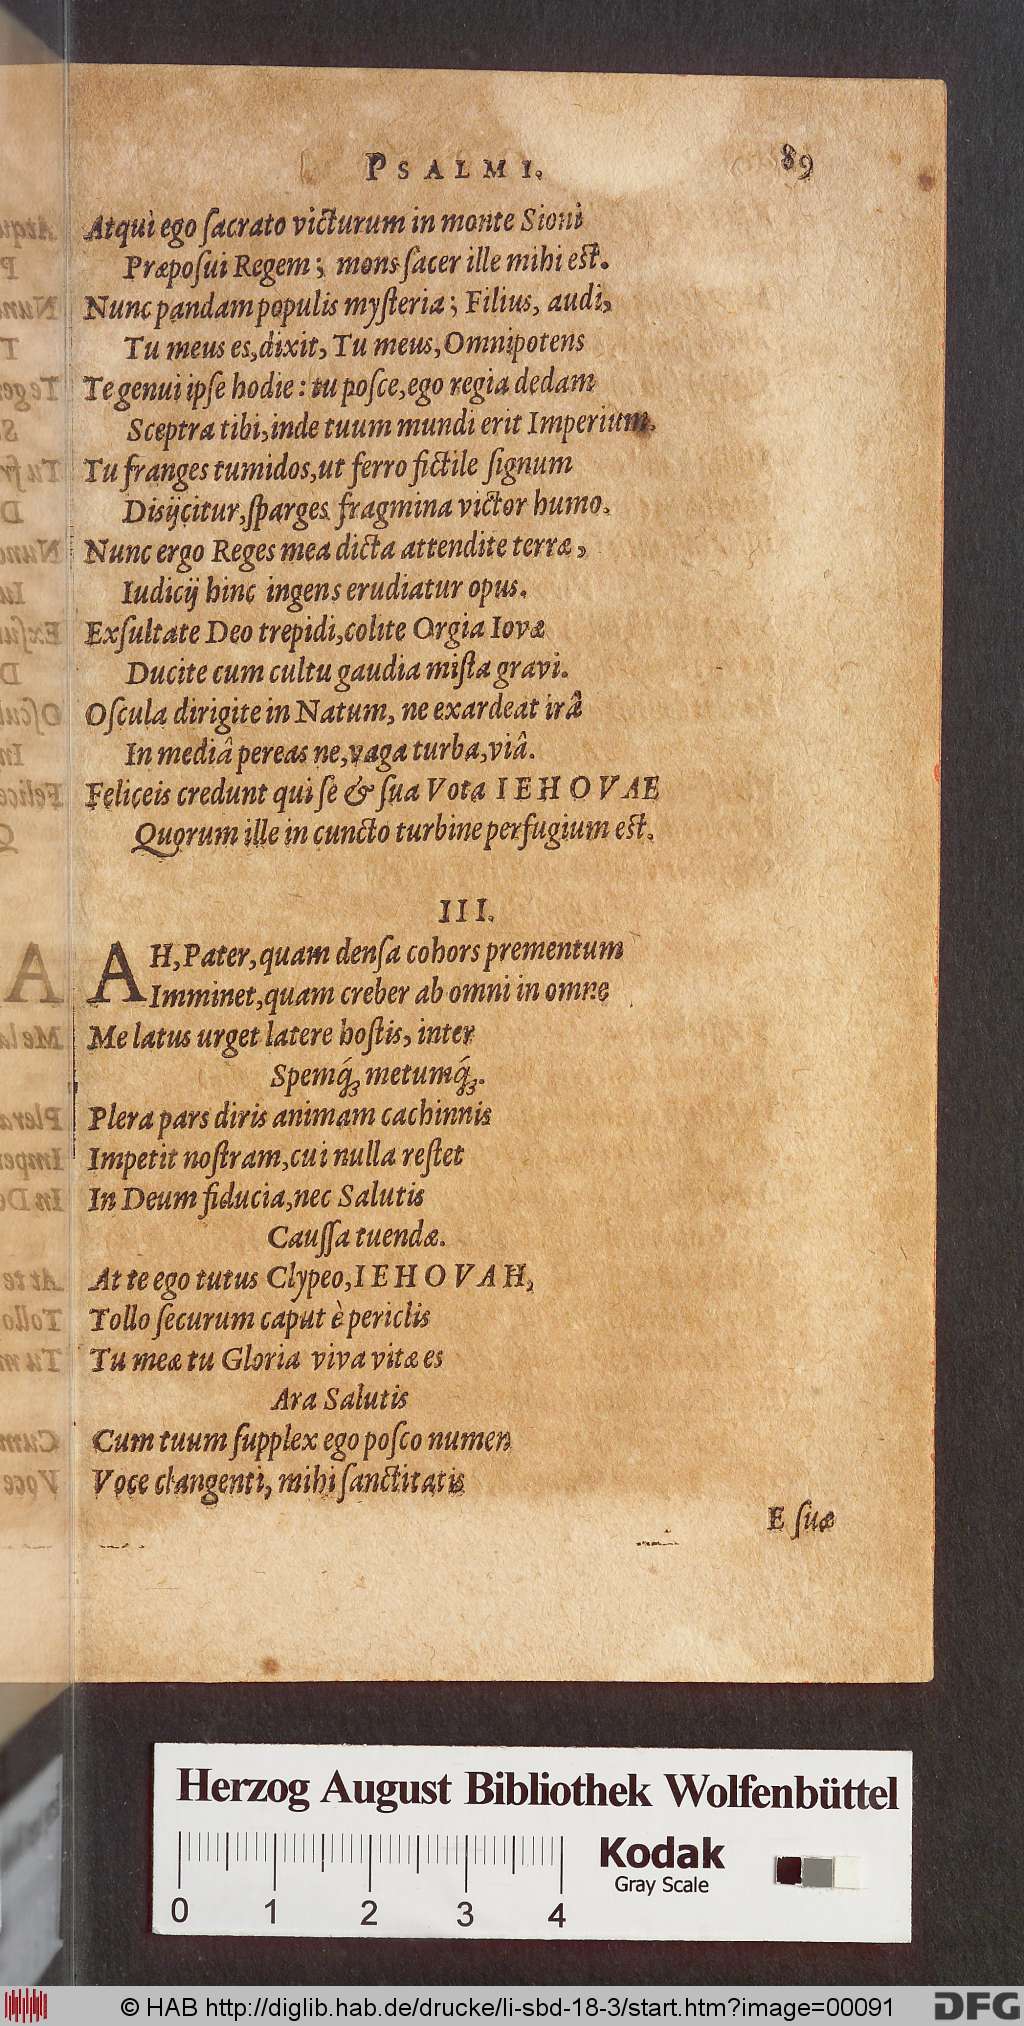 PSALMI. 89
Atqui ego ſacrato victurum in monte Sioni
Præpoſui Regem; mons ſacer ille mihi eſt.
Nunc pandam populis myſteria; Filius, audi,
Tu meus es, dixit, Tu meus, Omnipotens
Te genui ipſe hodie: tu poſce, ego regia dedam
Sceptra tibi, inde tuum mundi erit Imperium.
Tu franges tumidos, ut ferro fictile ſignum
Disijcitur, ſparges fragmina victor humo.
Nunc ergo Reges mea dicta attendite terræ,
Iudicij hinc ingens erudiatur opus.
Exſultate Deo trepidi, colite Orgia Iovæ
Ducite cum cultu gaudia miſta gravi.
Oſcula dirigite in Natum, ne exardeat irâ
In mediâ pereas ne, vaga turba, viâ.
Feliceis credunt qui ſe & ſua Vota IEHOVAE
Quorum ille in cuncto turbine perfugium eſt.
III.
AH, Pater, quam denſa cohors prementum
Imminet, quam creber ab omni in omne
Me latus urget latere hoſtis, inter
Spemq́; metumq́;.
Plera pars diris animam cachinnis
Impetit noſtram, cui nulla reſtet
In Deum fiducia, nec Salutis
Cauſſa tuendæ.
At te ego tutus Clypeo, IEHOVAH,
Tollo ſecurum caput è periclis
Tu meæ tu Gloria viva vitæ es
Ara Salutis
Cum tuum ſupplex ego poſco numen
Voce clangenti, mihi ſanctitatis
E ſuæ
Herzog August Bibliothek Wolfenbüttel
Kodak
Gray Scale
0 1 2 3 4
© HAB http://diglib.hab.de/drucke/li-sbd-18-3/start.htm?image=00091
DFG